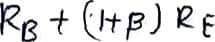 R_B + (1+β) R_E